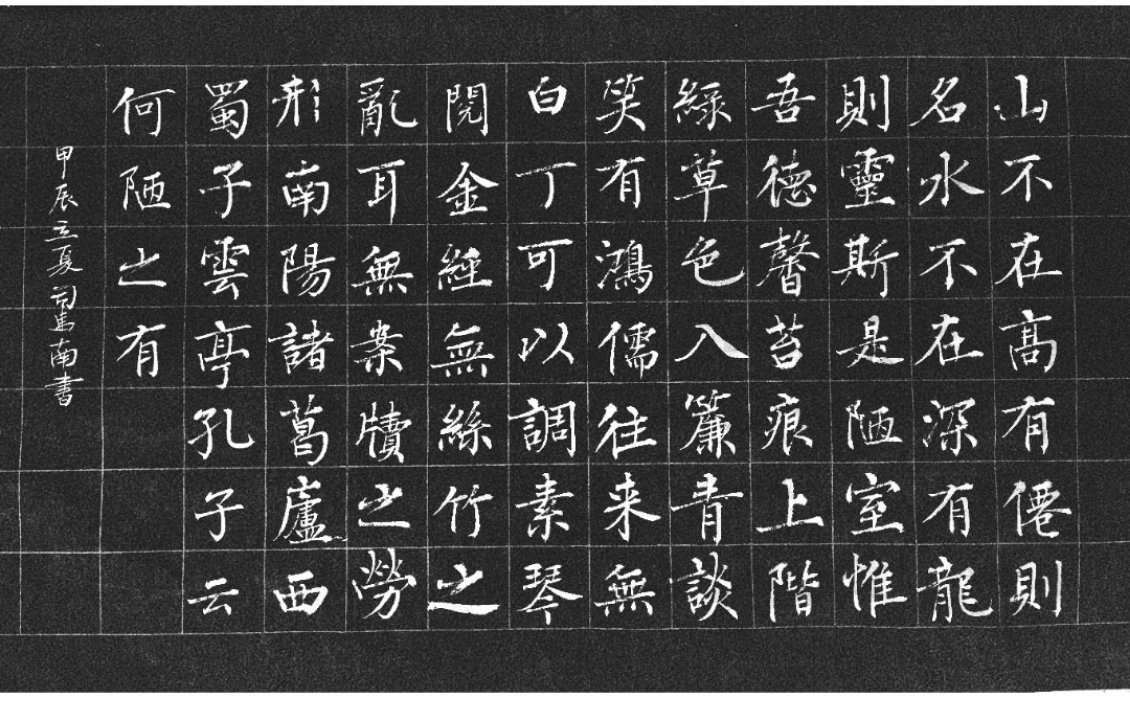 山不在髙有僊則
名水不在深有龍
則靈斯是陋室惟
吾德馨苔痕上階
綠草色入簾青談
笑有鴻儒往来無
白丁可以調素琴
閱金經無絲竹之
亂耳無案牘之勞
形南陽諸葛廬西
蜀子雲亭孔子云
何陋之有
甲辰立夏南書